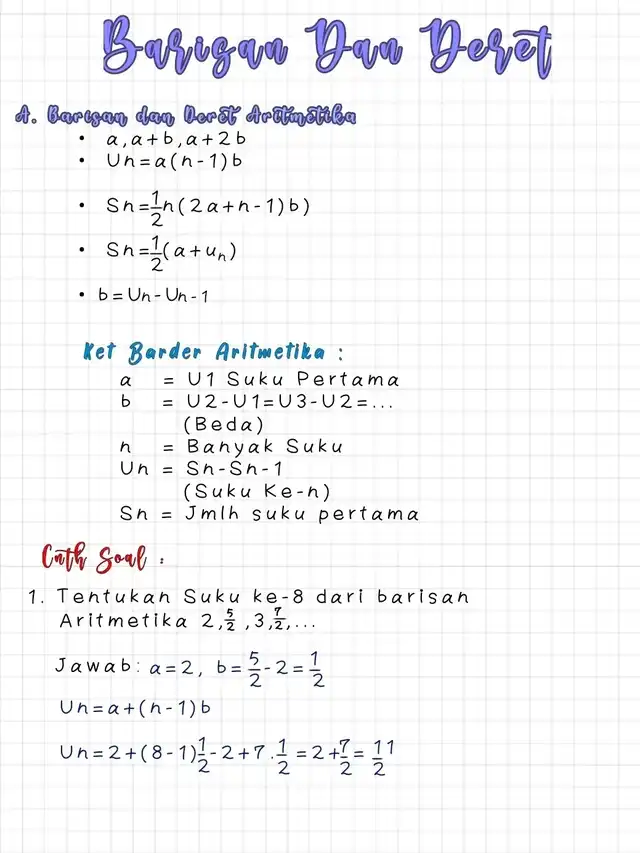 Barisan Dan Deret
A. Barisan dan Deret Aritmetika
• a, a+b, a+2b
• Un=a(n-1)b
• Sn=1/2n(2a+n-1)b)
• Sn=1/2(a+uₙ)
• b=Un-Un-1
Ket Barder Aritmetika :
a = U1 Suku Pertama
b = U2-U1=U3-U2=...
(Beda)
n = Banyak Suku
Un = Sn-Sn-1
(Suku Ke-n)
Sn = Jmlh suku pertama
Cnth Soal :
1. Tentukan Suku ke-8 dari barisan
Aritmetika 2,5/2,3,7/2,...
Jawab: a=2, b=5/2-2=1/2
Un=a+(n-1)b
Un=2+(8-1)1/2-2+7.1/2=2+7/2=11/2